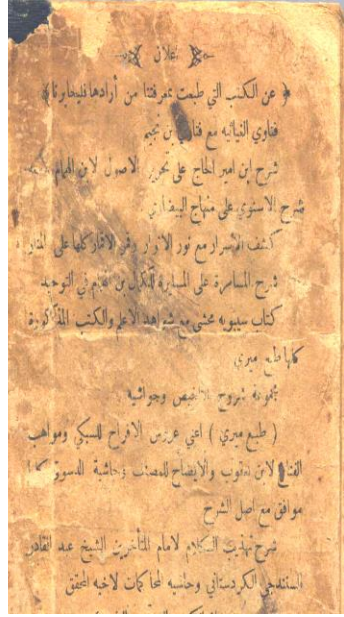 اعلان
﴿ عن الكتب التي طبعت بمعرفتنا من أرادها فليخابرنا ﴾
فتاوي الغياثيه مع فتاوي ابن نجيم
شرح ابن امير الحاج على تحرير الاصول لابن الهمام
شرح الاسنوي على منهاج البيضاوي
كشف الاسرار مع نور الانوار وقمر الاقمار كلها على المنار
شرح المسامرة على المسايرة للكمال بن همام في التوحيد
كتاب سيبويه محشى مع شواهد الاعلم والكتب المذكورة
كلها طبع ميري
مجموعة شروح التلخيص وحواشيه
( طبع ميري ) اعني عروس الافراح للسبكي ومواهب
الفتاح لابن يعقوب والايضاح للمصنف وحاشية الدسوقي كلها
موافق مع اصل الشرح
شرح تهذيب الكلام لامام المتأخرين الشيخ عبد القادر
السنندجي الكردستاني وحاشيه المحاكمات لاخيه المحقق